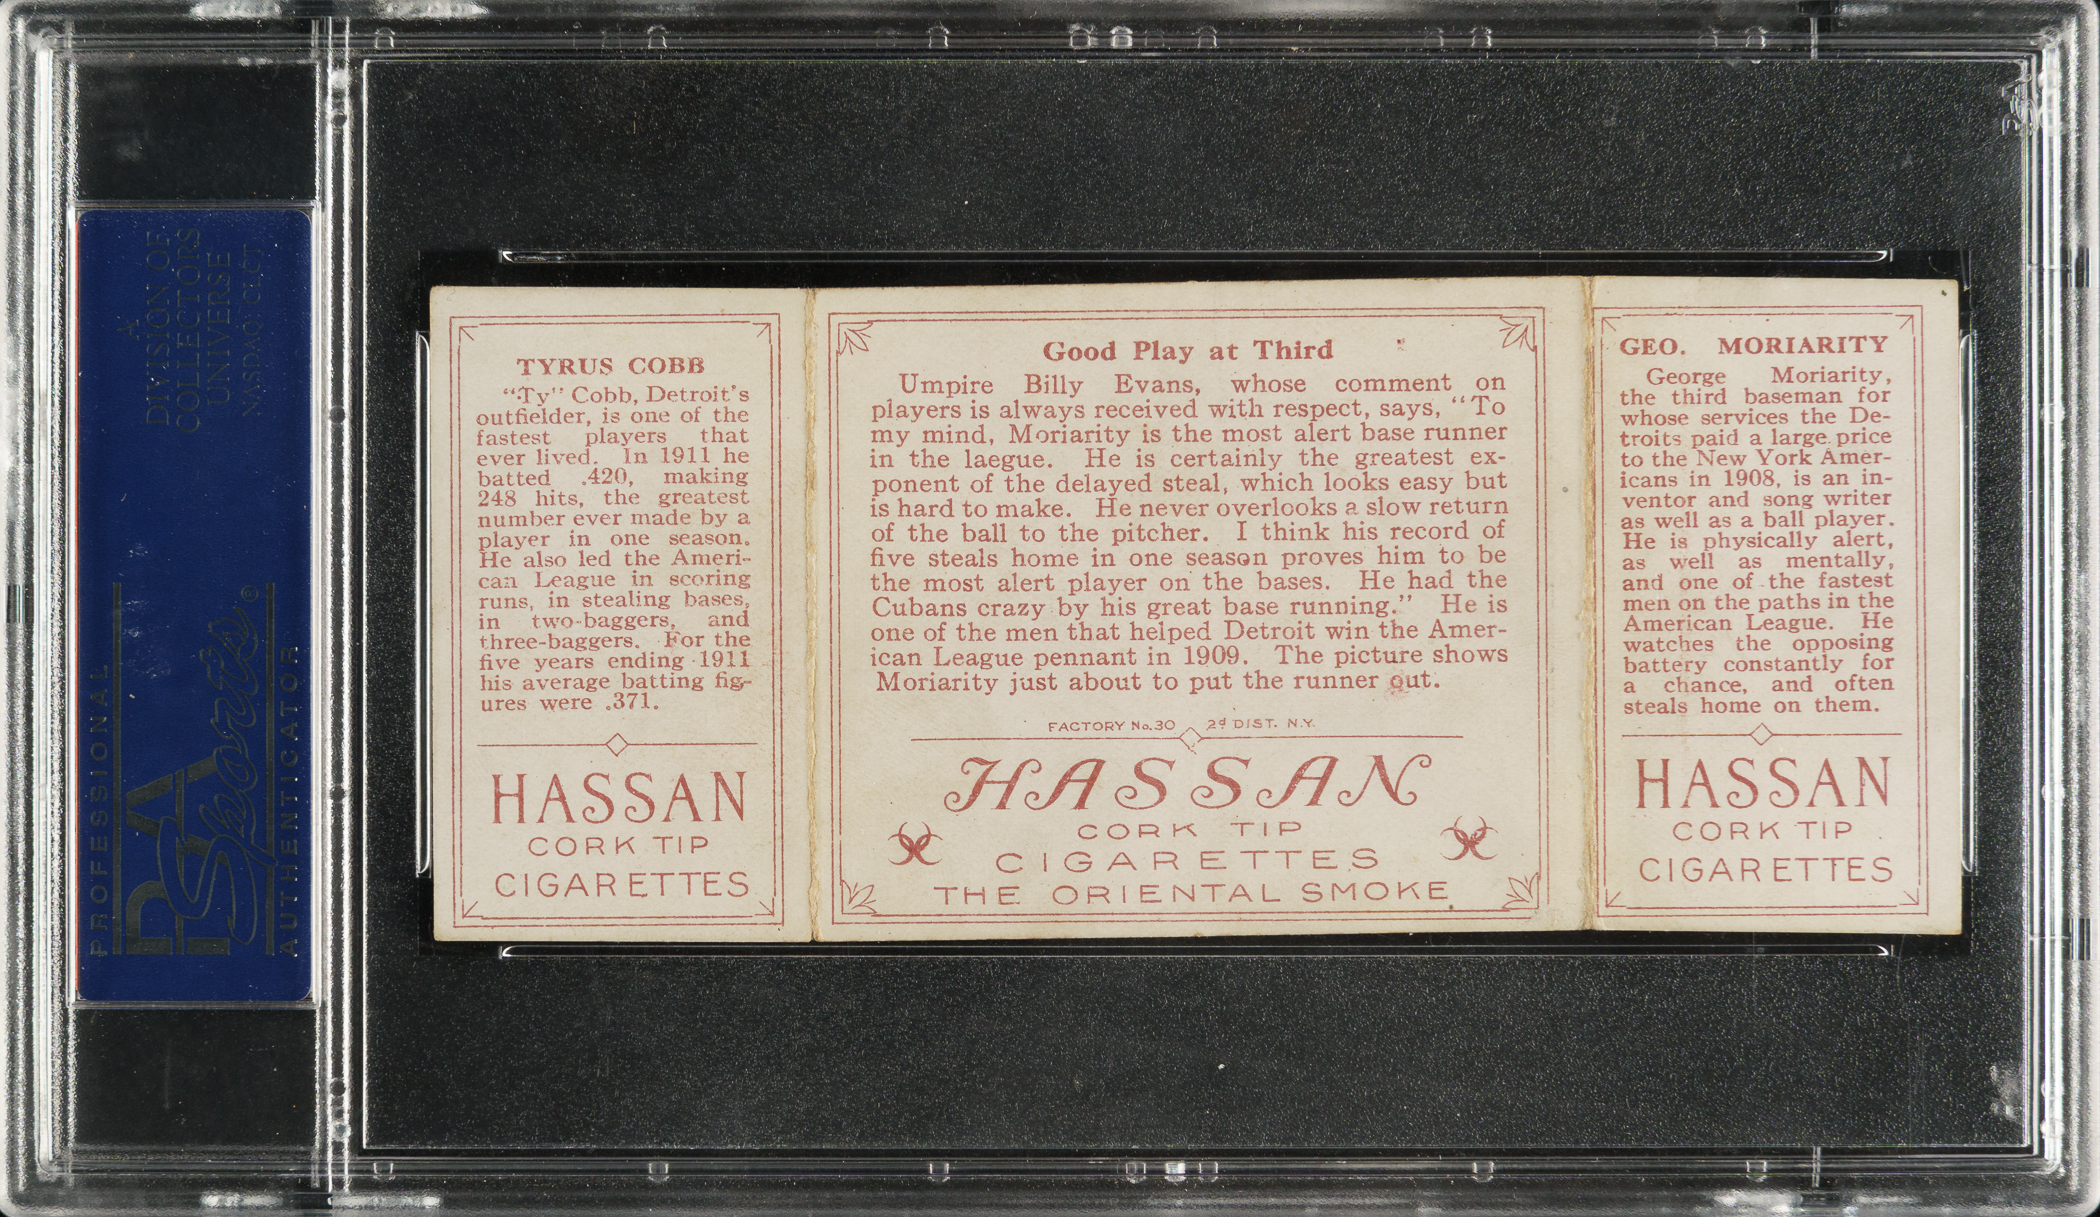 A
DIVISION OF
COLLECTORS
UNIVERSE
NASDAQ: CLCT
PROFESSIONAL
PSA
Sports®
AUTHENTICATOR
TYRUS COBB
"Ty" Cobb, Detroit's
outfielder, is one of the
fastest players that
ever lived. In 1911 he
batted .420, making
248 hits, the greatest
number ever made by a
player in one season.
He also led the Ameri-
can League in scoring
runs, in stealing bases,
in two-baggers, and
three-baggers. For the
five years ending 1911
his average batting fig-
ures were .371.
HASSAN
CORK TIP
CIGARETTES
Good Play at Third
Umpire Billy Evans, whose comment on
players is always received with respect, says, "To
my mind, Moriarity is the most alert base runner
in the laegue. He is certainly the greatest ex-
ponent of the delayed steal, which looks easy but
is hard to make. He never overlooks a slow return
of the ball to the pitcher. I think his record of
five steals home in one season proves him to be
the most alert player on the bases. He had the
Cubans crazy by his great base running." He is
one of the men that helped Detroit win the Amer-
ican League pennant in 1909. The picture shows
Moriarity just about to put the runner out.
FACTORY No.30 2d DIST. N.Y.
HASSAN
CORK TIP
CIGARETTES
THE ORIENTAL SMOKE
GEO. MORIARITY
George Moriarity,
the third baseman for
whose services the De-
troits paid a large price
to the New York Amer-
icans in 1908, is an in-
ventor and song writer
as well as a ball player.
He is physically alert,
as well as mentally,
and one of the fastest
men on the paths in the
American League. He
watches the opposing
battery constantly for
a chance, and often
steals home on them.
HASSAN
CORK TIP
CIGARETTES
PSA